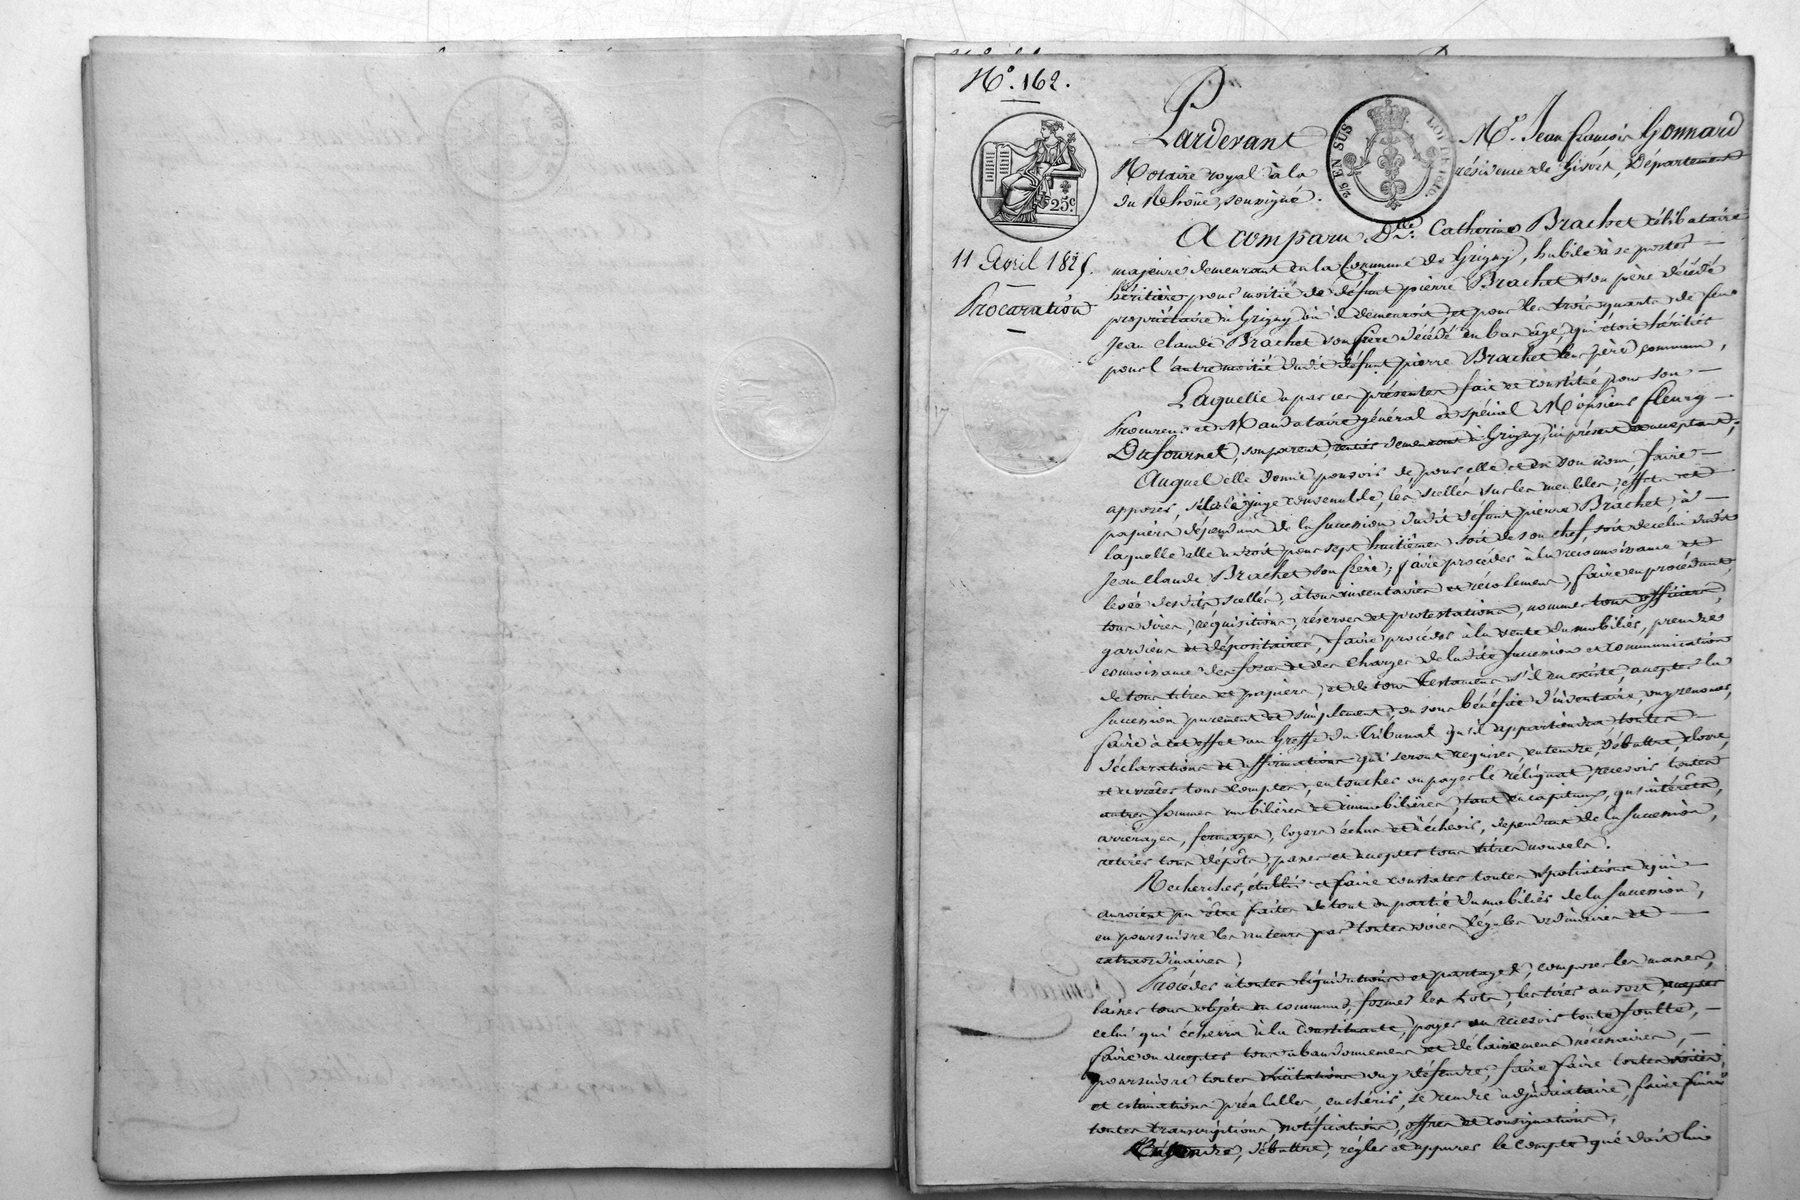 N.º 162.
Pardevant Mᵉ. Jean françois Gonnard
Notaire royal à la résidence de Givors, Département
du Rhône, soussigné.
2/5 EN SUS
LOI DE 1816.
25ᶜ
11 Avril 1825.
Procuration
A comparu Dˡˡᵉ. Catherine Brachet célibataire
majeure demeurant en la Commune de Grigny, habile à se porter
héritière pour moitié de défunt pierre Brachet son père décédé
propriétaire à Grigny où il demeuroit, et pour les trois quarts de feu
Jean Claude Brachet son frère décédé en bas âge, qui étoit héritier
pour l'autre moitié dudit défunt pierre Brachet leur père commun,
Laquelle a par ces présentes fait et constitué pour son
Procureur et Mandataire général et spécial Monsieur fleury
Dufournel, son parent, demeurant à Grigny, ici présent et acceptant,
Auquel elle donne pouvoir de pour elle et en son nom, faire
apposer, s'il le juge convenable, les scellés sur les meubles, effets et
papiers dépendants de la succession dudit défunt pierre Brachet, à
laquelle elle a droit pour sept huitièmes soit de son chef, soit de celui dudit
Jean Claude Brachet son frère; faire procéder à la reconnoissance et
levée desdits scellés, à tous inventaires et récolement, faire en procédant
tous dires, réquisitions, réserves et protestations, nommer tous officiers,
gardiens et dépositaires, faire procéder à la vente du mobilier, prendre
connoissance des forces et des charges de ladite succession et communication
de tous titres et papiers, et de tous testaments s'il en existe, accepter la
succession purement et simplement, ou sous bénéfice d'inventaire, ou y renoncer,
faire à cet effet au Greffe du Tribunal qu'il appartiendra toutes
déclarations et affirmations qui seront requises, entendre, débattre, clorre,
et arrêter tous comptes, en toucher ou payer le réliquat, recevoir toutes
autres sommes mobilières et immobilières, tant en capitaux, qu'intérêts,
arrérages, fermages, loyers échus et à échoir, dépendants de la succession,
retirer tous dépôts, passer et accepter tous titres nouvels.
Rechercher, établir et faire constater toutes spoliations qui
auroient pu être faites de tout ou partie du mobilier de la succession,
en poursuivre les auteurs par toutes voies légales ordinaires et
extraordinaires;
Procéder à toutes liquidations et partages, composer les masses,
laisser tous objets en commun, former les lots, les tirer au sort, accepter
celui qui écherra à la constituante, payer ou recevoir toute soulte,
faire ou accepter tous abandonnement et délaissement nécessaires,
poursuivre toutes licitations ou y défendre, faire faire toutes visites
et estimations préalables, enchérir, se rendre adjudicataire, faire faire
toutes transcriptions, notifications, offres et consignations,
Entendre, débattre, régler et appurer le compte que doit lui